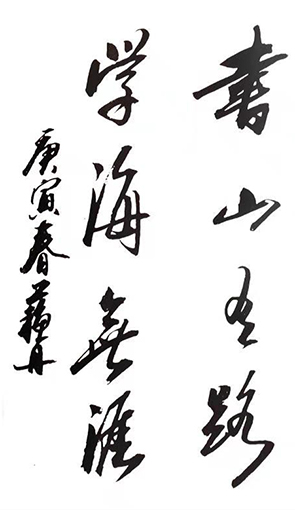 書山有路
学海無涯
庚寅春